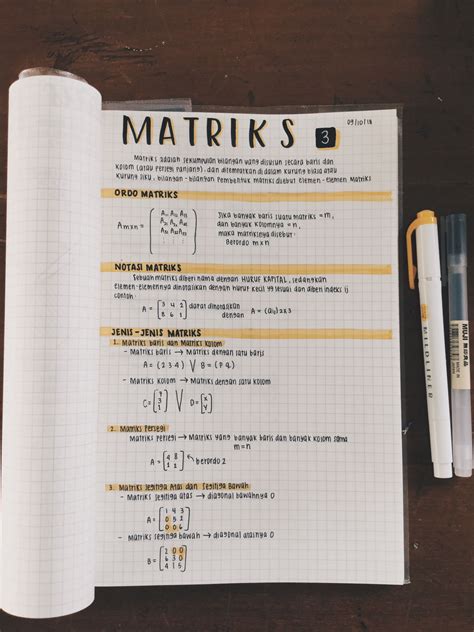 MATRIKS 3
09/10/18
Matriks adalah sekumpulan bilangan yang disusun secara baris dan
kolom (atau persegi panjang). dan ditempatkan di dalam kurung biasa atau
kurung siku, bilangan-bilangan pembentuk matriks disebut elemen-elemen matriks
ORDO MATRIKS
Amxn =
Jika banyak baris suatu matriks = m,
dan banyak kolomnya = n,
maka matriksnya disebut:
Berordo mxn
NOTASI MATRIKS
Sebuah matriks diberi nama dengan HURUF KAPITAL, sedangkan
elemen-elemennya dinotasikan dengan huruf kecil yg sesuai dan diberi indeks ij
contoh:
A = [3 4 2
8 6 1] dapat dinotasikan
dengan A = (aij)2x3
JENIS-JENIS MATRIKS
1. Matriks baris dan Matriks kolom
- Matriks baris → Matriks dengan satu baris
A = (2 3 4) V B = (P q)
- Matriks kolom → Matriks dengan satu kolom
V D = [x
y]
2. Matriks Persegi
Matriks Persegi → Matriks yang banyak baris dan banyak kolom sama
m=n
A = [4 8
1 2] berordo 2
3. Matriks Segitiga Atas dan Segitiga Bawah
- Matriks segitiga atas → diagonal bawahnya 0
A = [1 4 3
0 5 2
0 0 6]
- Matriks segitiga bawah → diagonal atasnya 0
B = [2 0 0
6 3 0
4 1 5]
MILDLINER
MUJI 無印良品